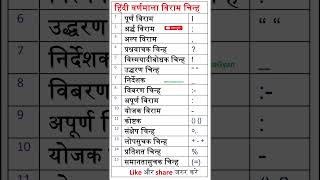 हिंदी वर्णमाला विराम चिन्ह
1 पूर्ण विराम |
2 अर्द्ध विराम ;
3 अल्प विराम ,
4 प्रश्नवाचक चिन्ह ?
5 विस्मयादीबोधक चिन्ह !
6 उद्धरण चिन्ह " "
7 निर्देशक
8 विबरण चिन्ह :-
9 अपूर्ण विराम :
10 योजक विराम -
11 कोष्टक () {}
12 संक्षेप चिन्ह
13 लोपसुचक चिन्ह + - +
14 प्रतिशत चिन्ह %
15 समानतासुचक चिन्ह (=)
Like और share जरुर करे
6 उद्धरण “ “
7 निर्देशक
8 विबरण
9 अपूर्ण वि
10 योजक